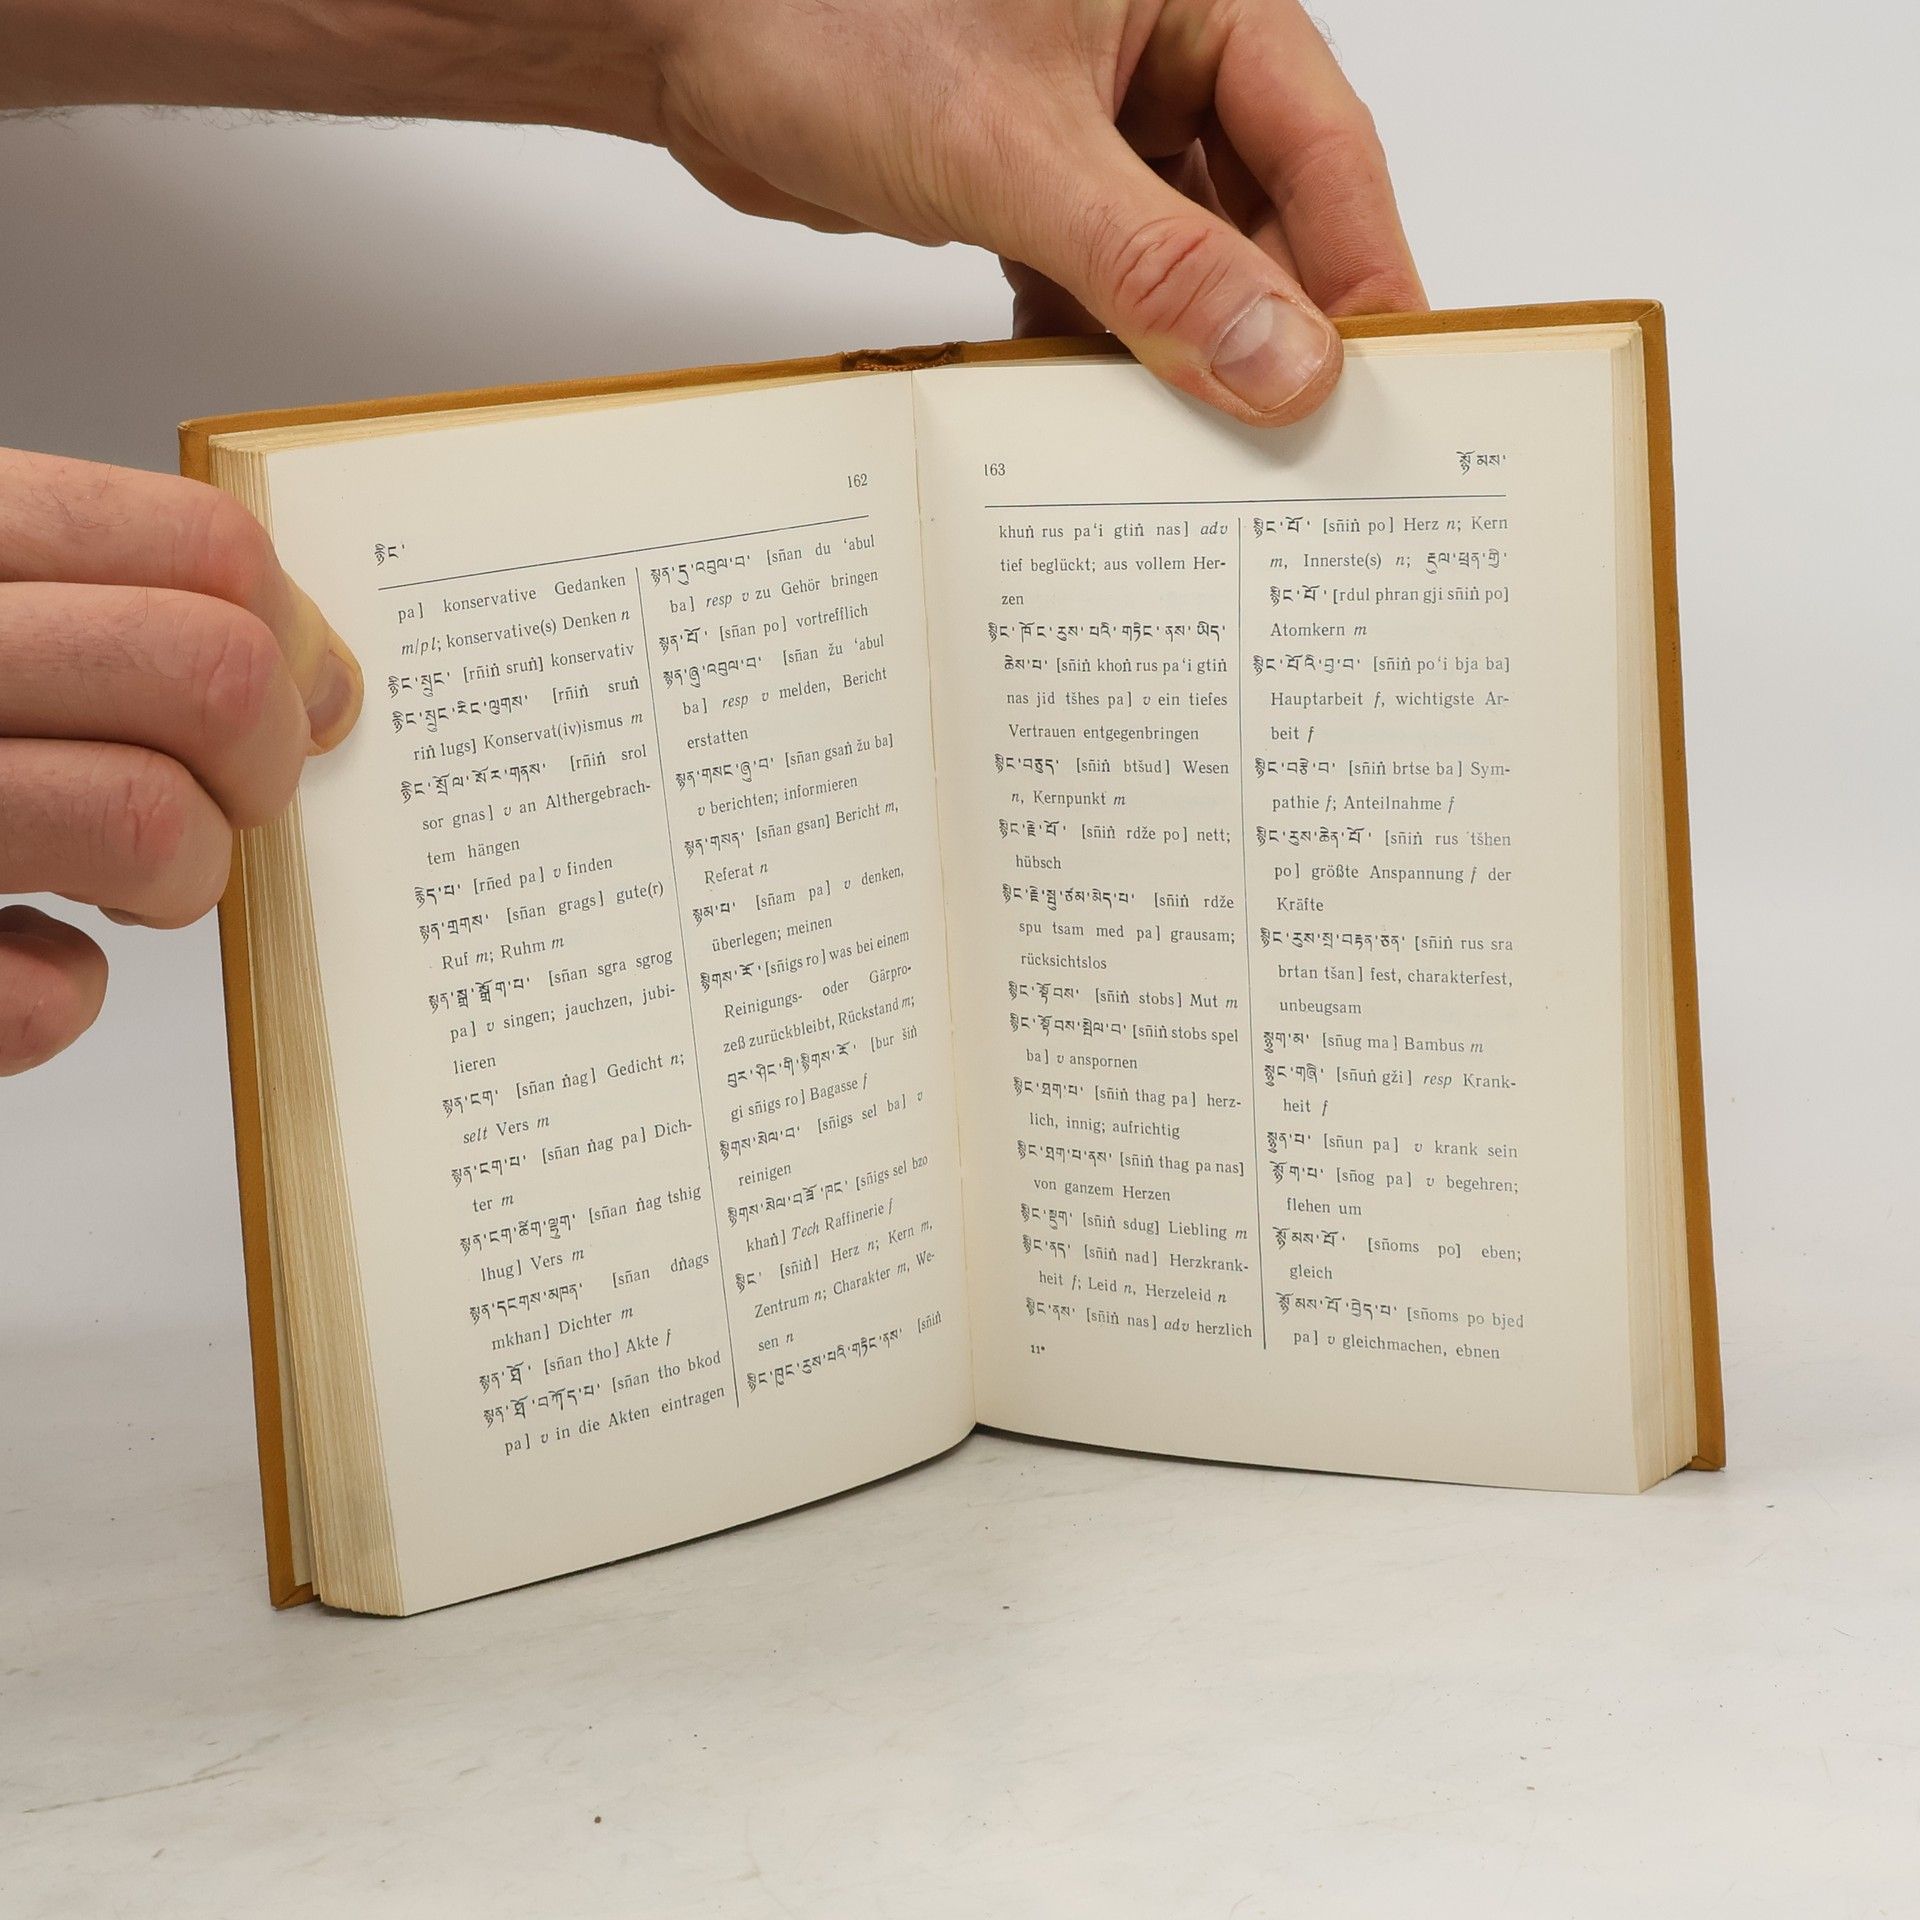 162
རྙིང་
pa] konservative Gedanken
m/pl; konservative(s) Denken n
རྙིང་སྲུང་ [rñiṅ sruṅ] konservativ
རྙིང་སྲུང་རིང་ལུགས་ [rñiṅ sruṅ
riṅ lugs] Konservat(iv)ismus m
རྙིང་སྲོལ་སོར་གནས་ [rñiṅ srol
sor gnas] v an Althergebrach-
tem hängen
རྙེད་པ་ [rñed pa] v finden
སྙན་གྲགས་ [sñan grags] gute(r)
Ruf m; Ruhm m
སྙན་སྒྲ་སྒྲོག་པ་ [sñan sgra sgrog
pa] v singen; jauchzen, jubi-
lieren
སྙན་ངག་ [sñan ṅag] Gedicht n;
selt Vers m
སྙན་ངག་པ་ [sñan ṅag pa] Dich-
ter m
སྙན་ངག་ཚིག་ལྷུག་ [sñan ṅag tshig
lhug] Vers m
སྙན་དངགས་མཁན་ [sñan dṅags
mkhan] Dichter m
སྙན་ཐོ་ [sñan tho] Akte f
སྙན་ཐོ་བཀོད་པ་ [sñan tho bkod
pa] v in die Akten eintragen
སྙན་དུ་འབུལ་བ་ [sñan du ʻabul
ba] resp v zu Gehör bringen
སྙན་པོ་ [sñan po] vortrefflich
སྙན་ཞུ་འབུལ་བ་ [sñan žu ʻabul
ba] resp v melden, Bericht
erstatten
སྙན་གསང་ཞུ་བ་ [sñan gsaṅ žu ba]
v berichten; informieren
སྙན་གསན་ [sñan gsan] Bericht m,
Referat n
སྙམ་པ་ [sñam pa] v denken,
überlegen; meinen
སྙིགས་རོ་ [sñigs ro] was bei einem
Reinigungs- oder Gärpro-
zeß zurückbleibt, Rückstand m;
བུར་ཤིང་གི་སྙིགས་རོ་ [bur šiṅ
gi sñigs ro] Bagasse f
སྙིགས་སེལ་བ་ [sñigs sel ba] v
reinigen
སྙིགས་སེལ་བཟོ་ཁང་ [sñigs sel bzo
khaṅ] Tech Raffinerie f
སྙིང་ [sñiṅ] Herz n; Kern m,
Zentrum n; Charakter m, We-
sen n
སྙིང་ཁུང་རུས་པའི་གཏིང་ནས་ [sñiṅ
163
སྙོམས་
khuṅ rus paʻi gtiṅ nas] adv
tief beglückt; aus vollem Her-
zen
སྙིང་ཁོང་རུས་པའི་གཏིང་ནས་ཡིད་
ཆེས་པ་ [sñiṅ khoṅ rus paʻi gtiṅ
nas jid tšhes pa] v ein tiefes
Vertrauen entgegenbringen
སྙིང་བཅུད་ [sñiṅ btšud] Wesen
n, Kernpunkt m
སྙིང་རྗེ་པོ་ [sñiṅ rdže po] nett;
hübsch
སྙིང་རྗེ་སྤུ་ཙམ་མེད་པ་ [sñiṅ rdže
spu tsam med pa] grausam;
rücksichtslos
སྙིང་སྟོབས་ [sñiṅ stobs] Mut m
སྙིང་སྟོབས་སྤེལ་བ་ [sñiṅ stobs spel
ba] v anspornen
སྙིང་ཐག་པ་ [sñiṅ thag pa] herz-
lich, innig; aufrichtig
སྙིང་ཐག་པ་ནས་ [sñiṅ thag pa nas]
von ganzem Herzen
སྙིང་སྡུག་ [sñiṅ sdug] Liebling m
སྙིང་ནད་ [sñiṅ nad] Herzkrank-
heit f; Leid n, Herzeleid n
སྙིང་ནས་ [sñiṅ nas] adv herzlich
11*
སྙིང་པོ་ [sñiṅ po] Herz n; Kern
m, Innerste(s) n; རྡུལ་ཕྲན་གྱི་
སྙིང་པོ་ [rdul phran gji sñiṅ po]
Atomkern m
སྙིང་པོའི་བྱ་བ་ [sñiṅ poʻi bja ba]
Hauptarbeit f, wichtigste Ar-
beit f
སྙིང་བརྩེ་བ་ [sñiṅ brtse ba] Sym-
pathie f; Anteilnahme f
སྙིང་རུས་ཆེན་པོ་ [sñiṅ rus tšhen
po] größte Anspannung f der
Kräfte
སྙིང་རུས་སྲ་བརྟན་ཅན་ [sñiṅ rus sra
brtan tšan] fest, charakterfest,
unbeugsam
སྙུག་མ་ [sñug ma] Bambus m
སྙུང་གཞི་ [sñuṅ gži] resp Krank-
heit f
སྙུན་པ་ [sñun pa] v krank sein
སྙོག་པ་ [sñog pa] v begehren;
flehen um
སྙོམས་པོ་ [sñoms po] eben;
gleich
སྙོམས་པོ་བྱེད་པ་ [sñoms po bjed
pa] v gleichmachen, ebnen